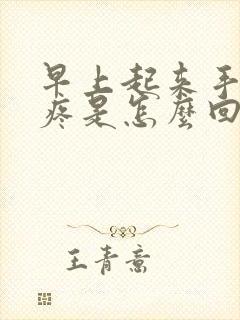 早上起来手
疼是怎麼回
王青意